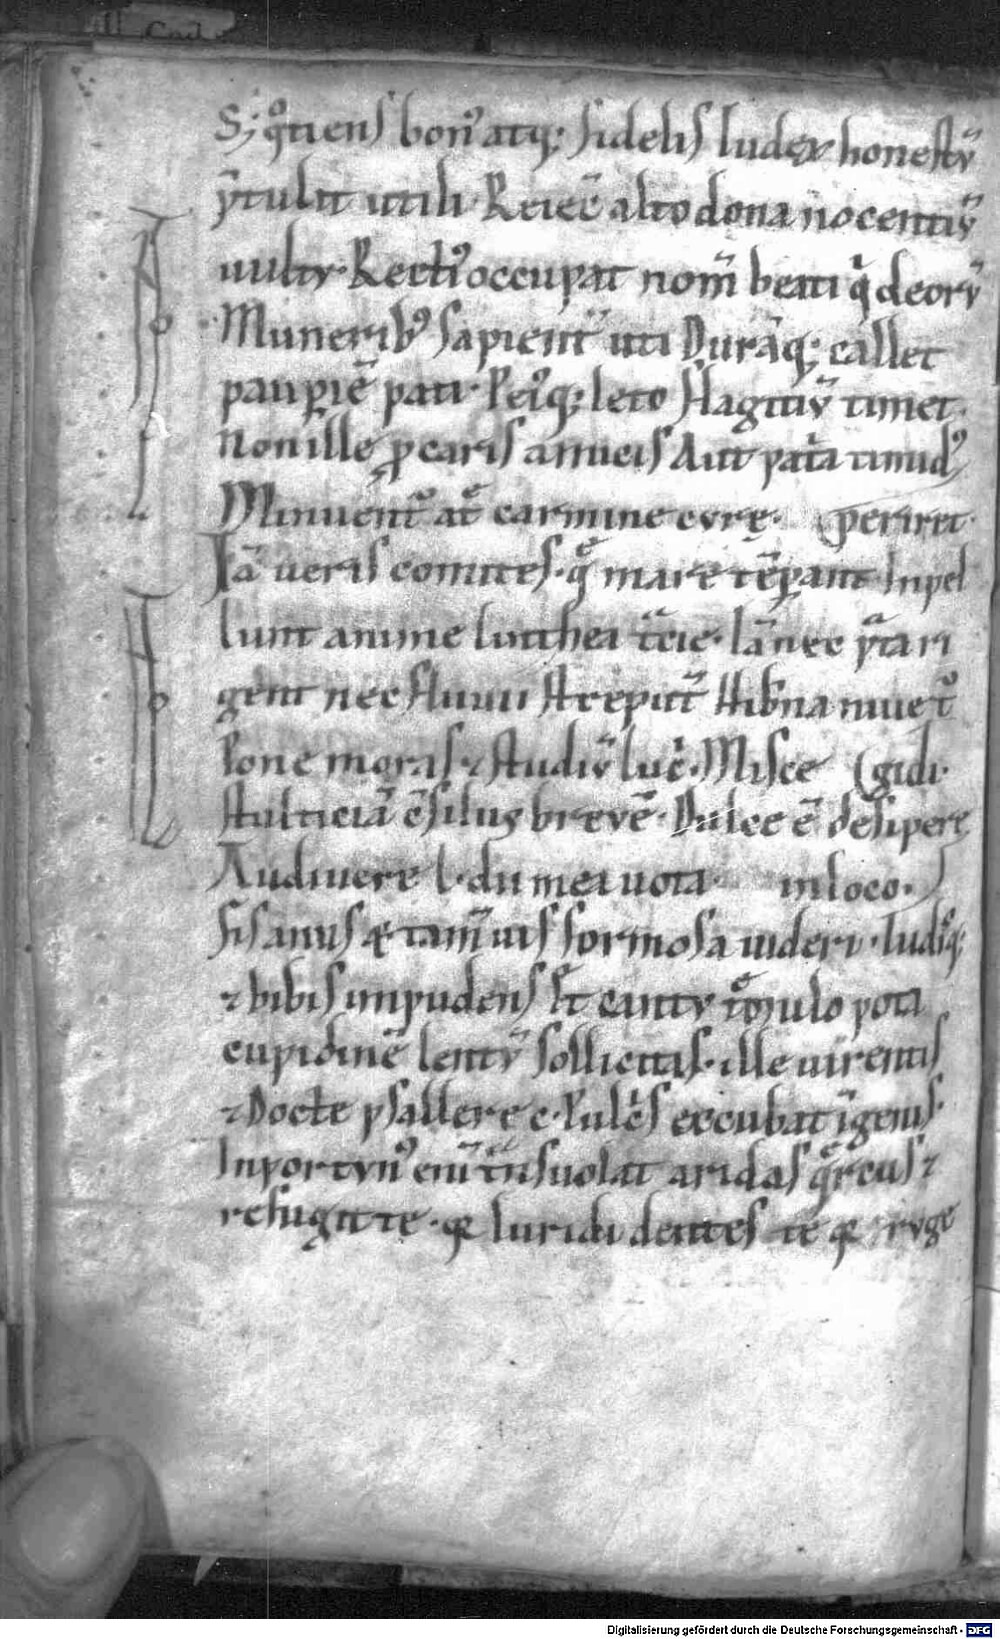 S; q̊tiens bon᷒ atq; fidelis Iudex honestv̄
p̄tulit utili. Reiec̄ alto dona nocentiv̄
uultv. Rect᷒ occupat nom̄ beati q̇ deorv̄
Munerib᷒ sapient̄ uti Durāq; callet
paupiē pati. Pei᷒q; leto flagitiv̄ timet.
Non ille ꝑ caris amicis Aut patͣa timid᷒
Minuent᷑ at̄ carmine cvrę. ꝑeriret.
Iā ueris comites. q̄ mare tēꝑant Inpel
lunt anime linthea t̄cie. Iā nec p̄ta ri
gent nec fluuii strepūt Hib̄na niue t᷑
Pone moras ⁊ studiv̄ luc̄. Misce (gidi.
stulticiā c̄siliis brevē. Dulce ē desipere
Audiuere l. di mea uota. in loco.)
Fis anus ⁊ tam̄ uis formosa uideri. ludisq;
⁊ bibis inpudens Et cantv tͤmulo pota
cupidinē lentv̄ sollicitas. ille uirentis
⁊ Docte psallere c. Pulc̄s excubat īgenis.
Inportvn᷒ enī t̄nsuolat aridas q̄rcus ⁊
refugit te. q̄ luridi dentes te q̄ rvge